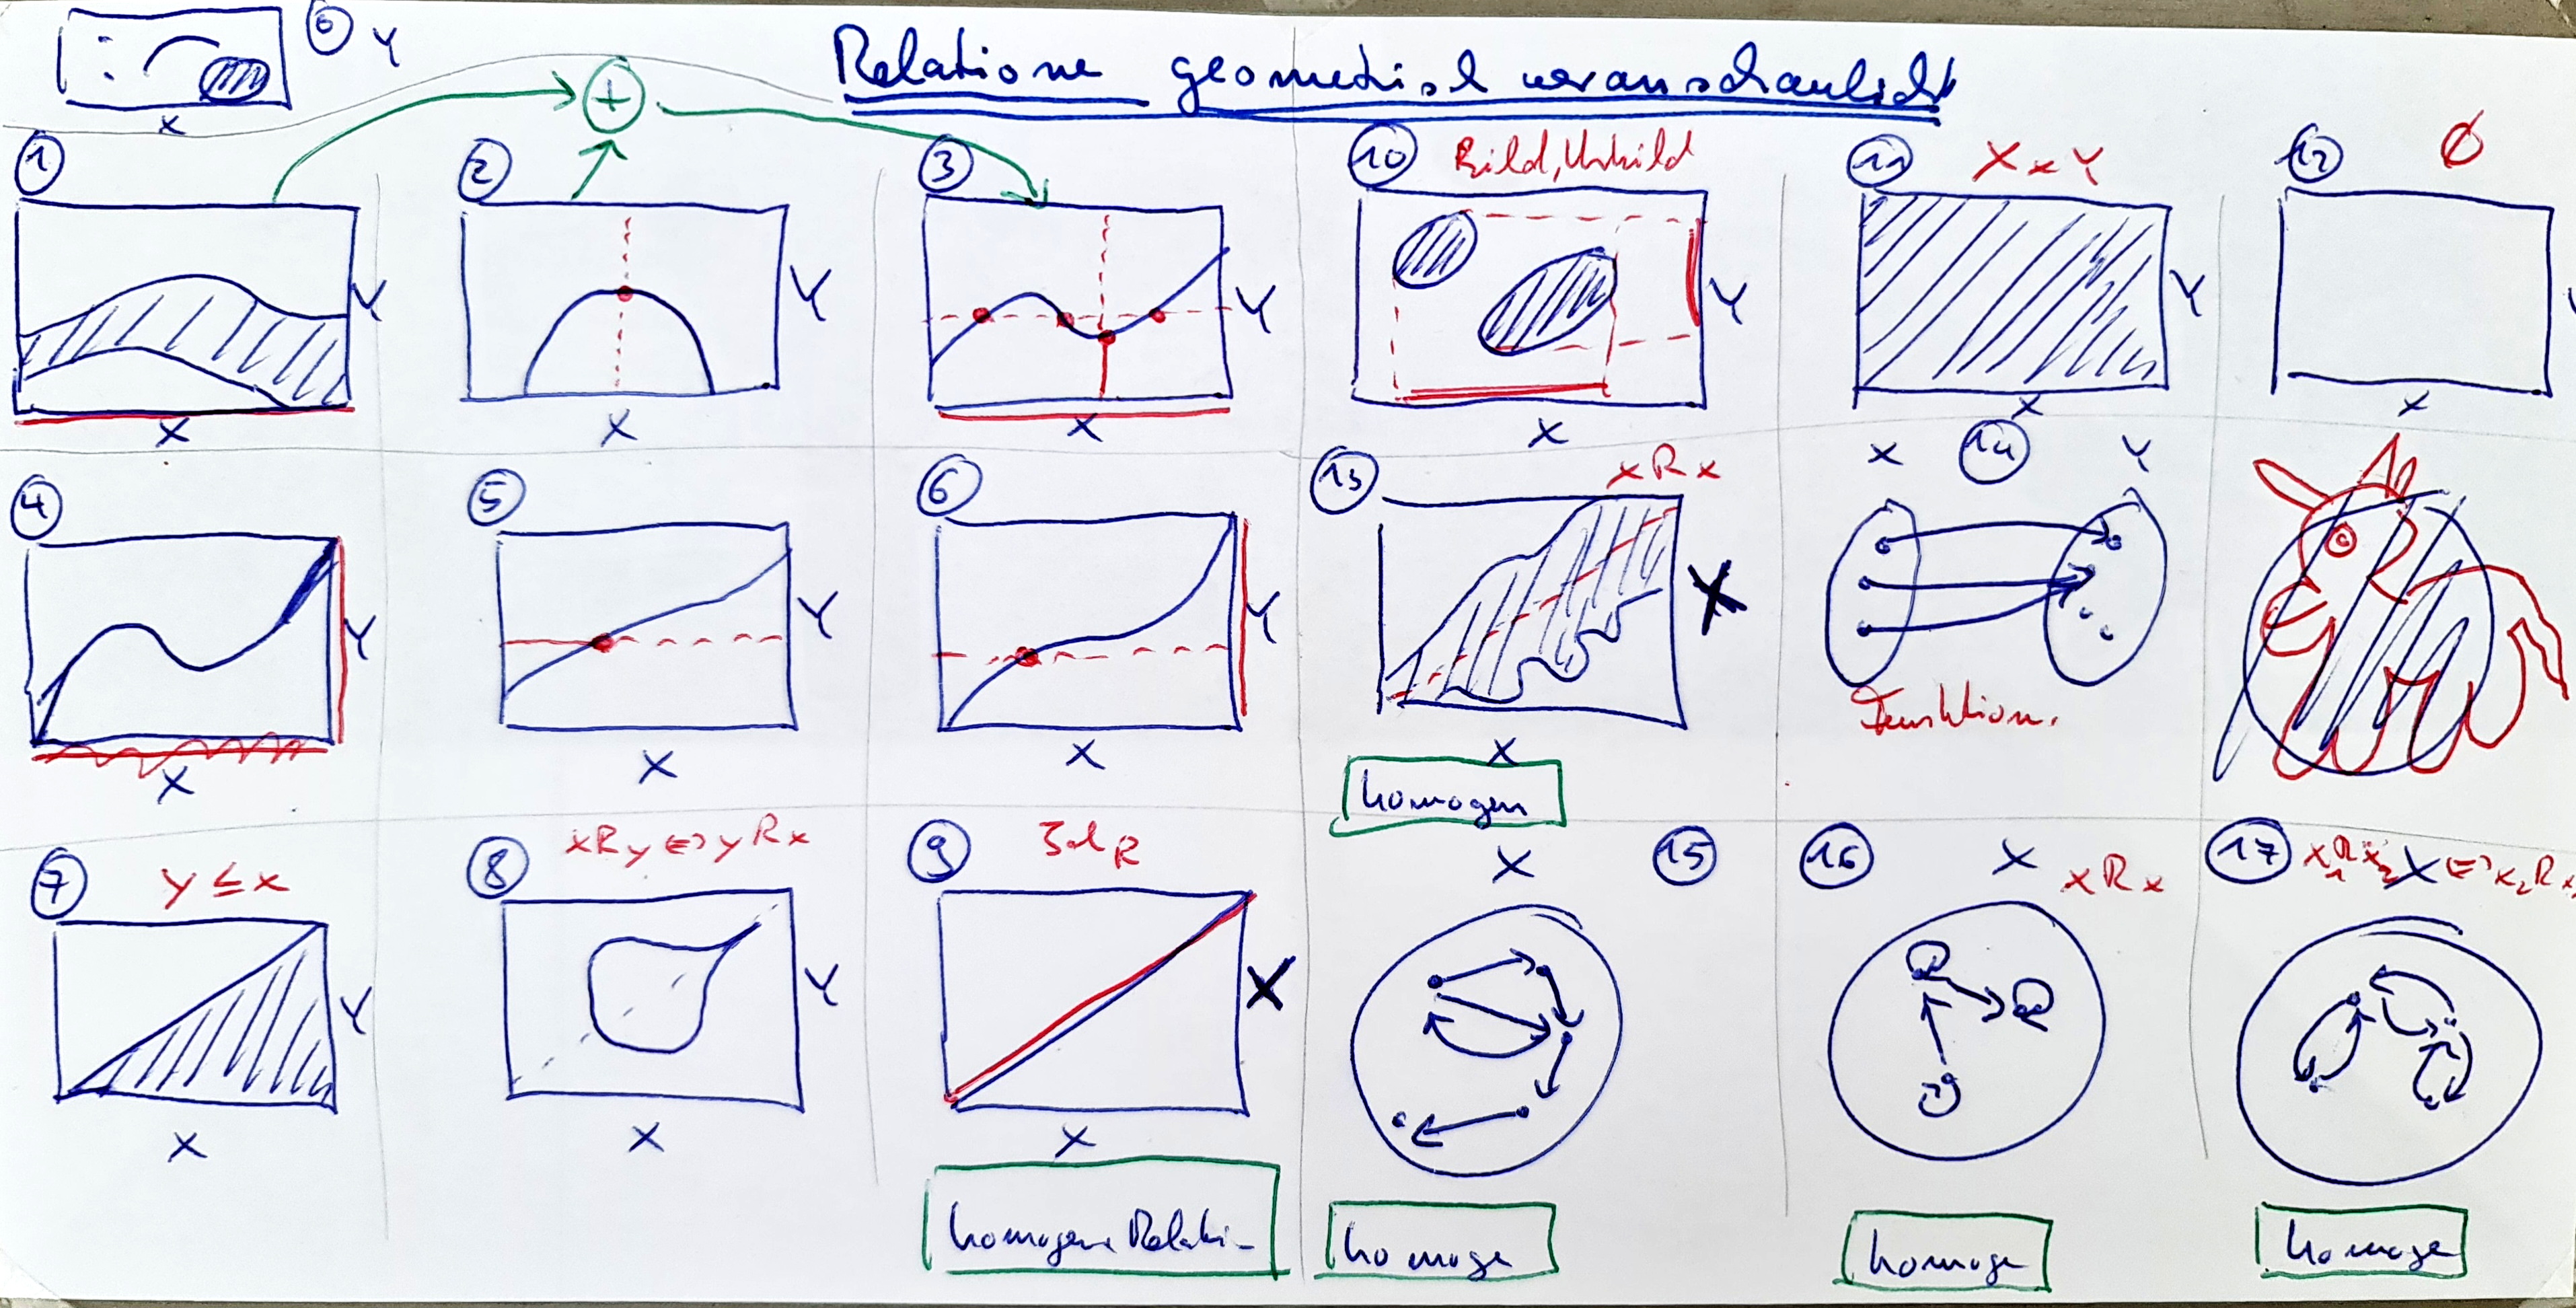 0 Y
X
Relatione geometrisch veranschaulicht
+
1
X
Y
2
X
Y
3
X
Y
10 Bild, Urbild
X
Y
11 X x Y
X
Y
12 ∅
X
4
X
Y
5
X
Y
6
X
Y
13 xRx
X
X
homogen
X 14 Y
Funktion.
7 y ≤ x
X
Y
8 xRy ⇔ yRx
X
Y
9
X
X
homogene Relati
X 15
homoge
16 X xRx
homoge
17 x₁Rx₂ X ⇔ x₂Rx₁
homoge